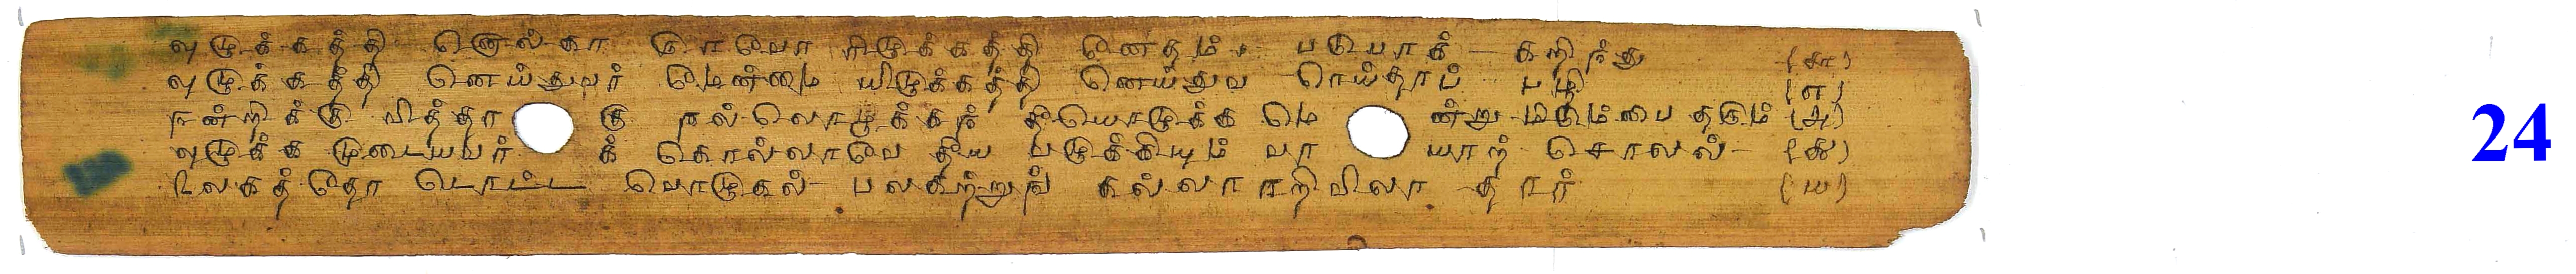 வுழுக்கத்தி னொல்கா ருரவோ ரிழுக்கத்தி னேதம் படுபாக் கறிந்து (சா)
வுழுக்கத்தி னெய்துவர் மேன்மை யிழுக்கத்தி னெய்துவ ரெய்தாப் பழி (எ)
நன்றிக்கு வித்தா கு நல்லொழுக்கந் தீயொழுக்க மெ ன்று மிடும்பை தரும் (அ)
வுழுக்க முடையவர் க் கொல்லாவே தீய வழுக்கியும் வா யாற் சொலல் (கூ)
உலகத்தோ டொட்ட வொழுகல் பலகற்றுங் கல்லா ரறிவிலா தார் (ய)
24